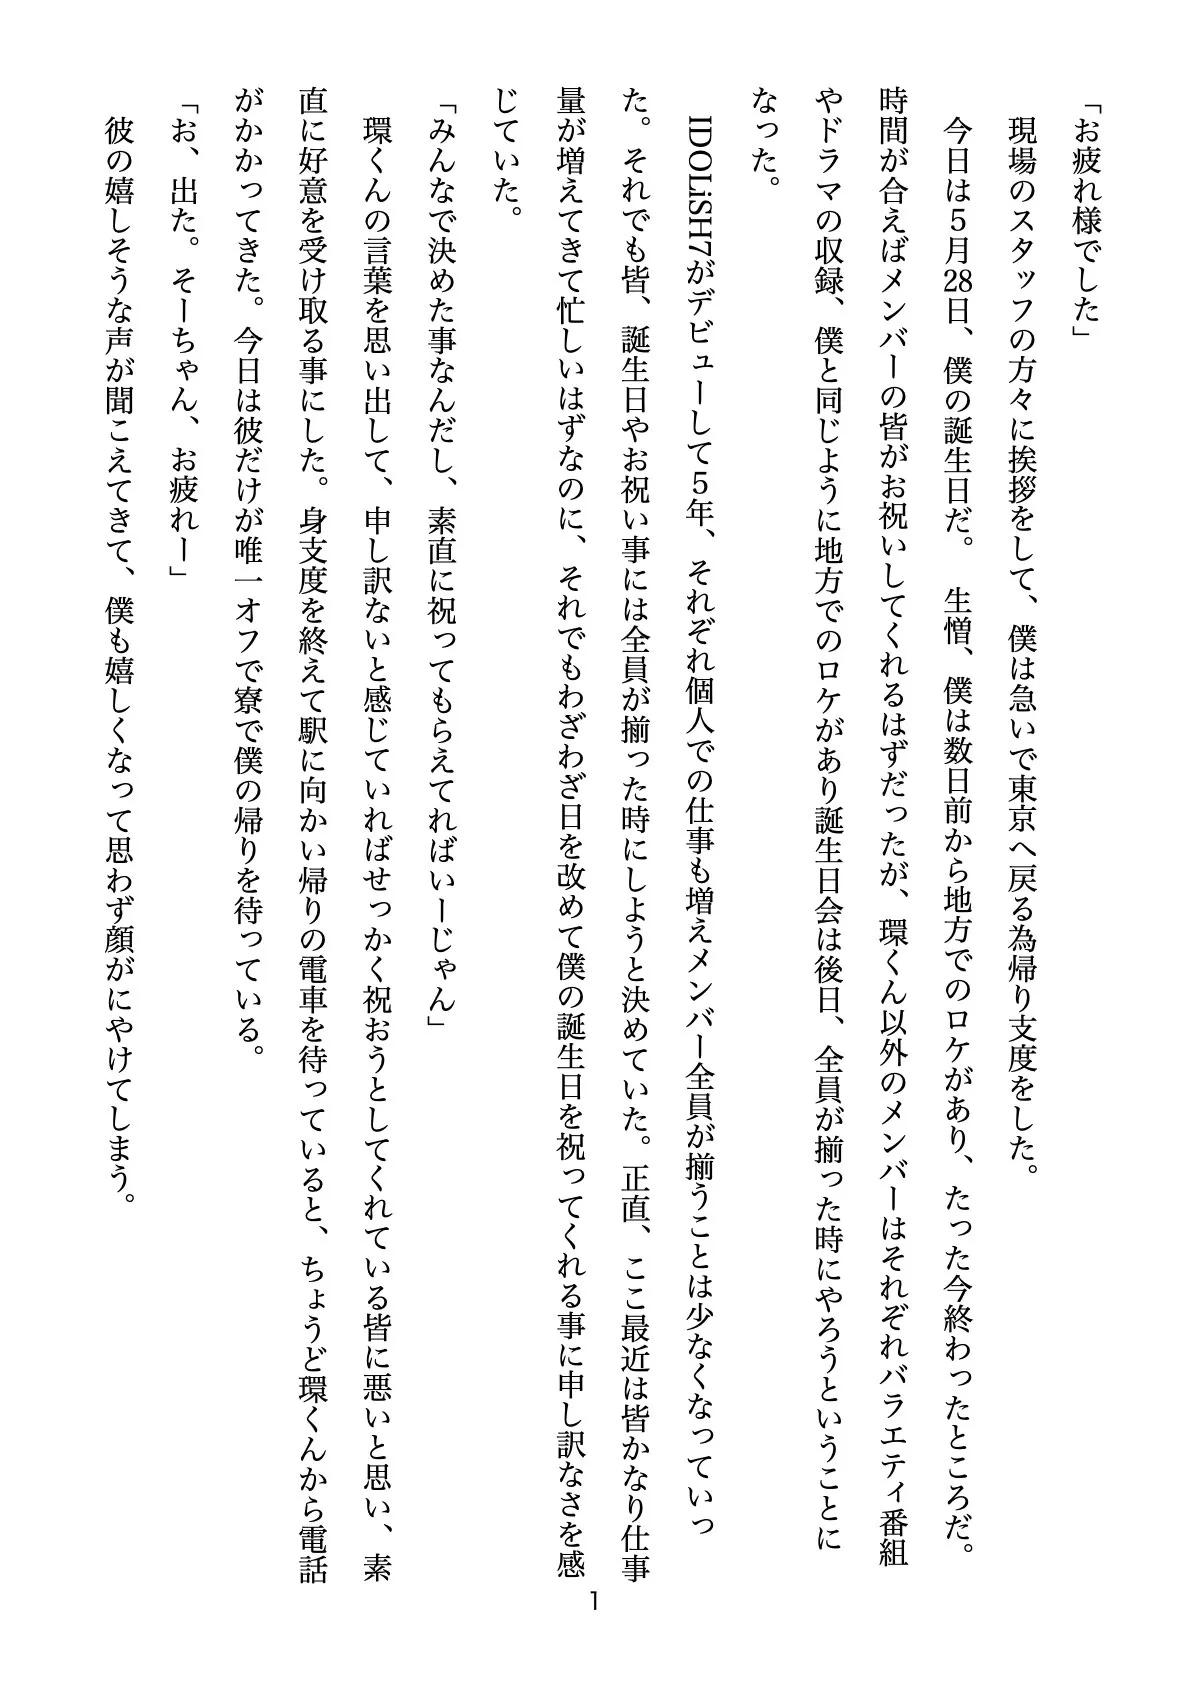 「お疲れ様でした」
　現場のスタッフの方々に挨拶をして、僕は急いで東京へ戻る為帰り支度をした。
　今日は５月28日、僕の誕生日だ。　生憎、僕は数日前から地方でのロケがあり、たった今終わったところだ。
時間が合えばメンバーの皆がお祝いしてくれるはずだったが、環くん以外のメンバーはそれぞれバラエティ番組
やドラマの収録、僕と同じように地方でのロケがあり誕生日会は後日、全員が揃った時にやろうということに
なった。
　IDOLiSH7がデビューして５年、それぞれ個人での仕事も増えメンバー全員が揃うことは少なくなっていっ
た。それでも皆、誕生日やお祝い事には全員が揃った時にしようと決めていた。正直、ここ最近は皆かなり仕事
量が増えてきて忙しいはずなのに、それでもわざわざ日を改めて僕の誕生日を祝ってくれる事に申し訳なさを感
じていた。
「みんなで決めた事なんだし、素直に祝ってもらえてればいーじゃん」
　環くんの言葉を思い出して、申し訳ないと感じていればせっかく祝おうとしてくれている皆に悪いと思い、素
直に好意を受け取る事にした。身支度を終えて駅に向かい帰りの電車を待っていると、ちょうど環くんから電話
がかかってきた。今日は彼だけが唯一オフで寮で僕の帰りを待っている。
「お、出た。そーちゃん、お疲れー」
　彼の嬉しそうな声が聞こえてきて、僕も嬉しくなって思わず顔がにやけてしまう。
1